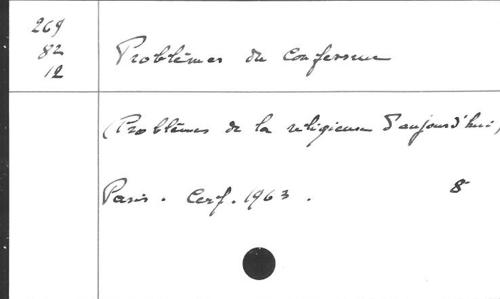 269
82
12
Problèmes du confesseur
(Problèmes de la religieuse d'aujourd'hui)
Paris. Cerf. 1963. 8°